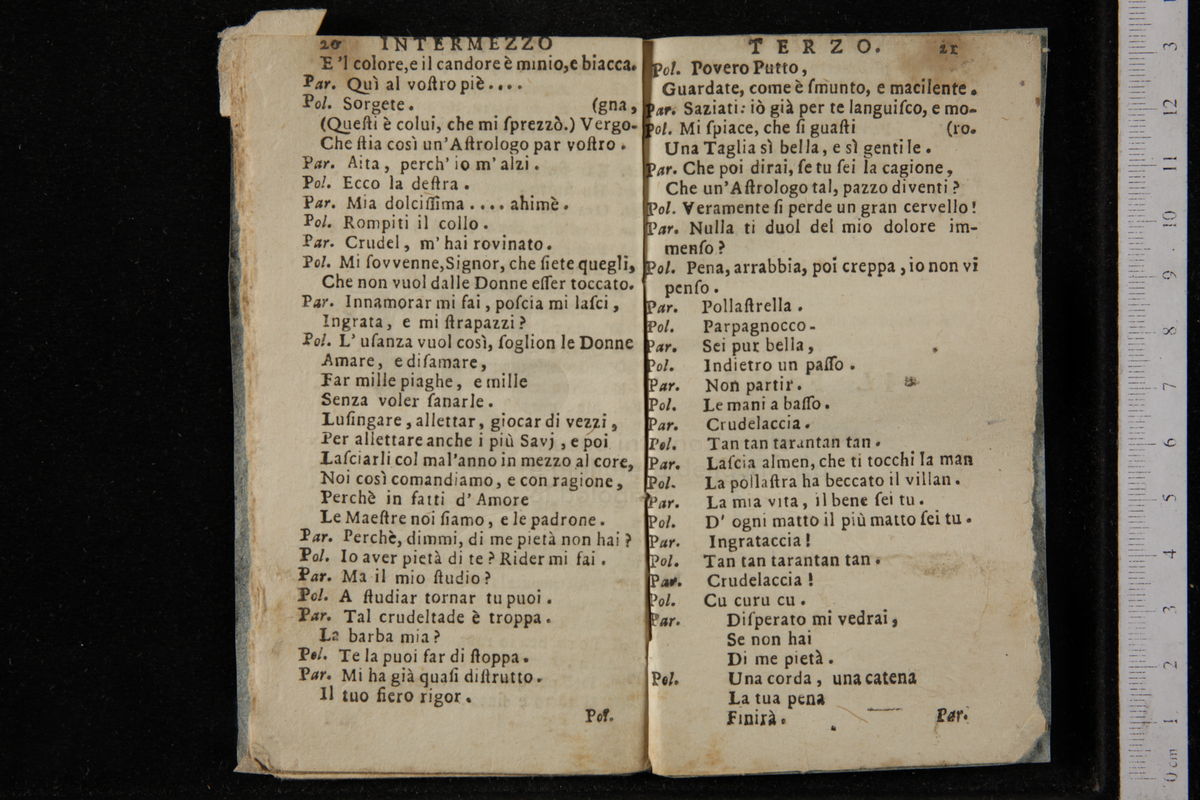 20 INTERMEZZO
E 'l colore, e il candore è minio, e biacca.
Par. Quì al voſtro piè....
Pol. Sorgete. (gna,
(Queſti è colui, che mi ſprezzò.) Vergo-
Che ſtia così un'Aſtrologo par voſtro.
Par. Aita, perch' io m' alzi.
Pol. Ecco la deſtra.
Par. Mia dolciſſima .... ahimè.
Pol. Rompiti il collo.
Par. Crudel, m' hai rovinato.
Pol. Mi ſovvenne, Signor, che ſiete quegli,
Che non vuol dalle Donne eſſer toccato.
Par. Innamorar mi fai, poſcia mi laſci,
Ingrata, e mi ſtrapazzi?
Pol. L' uſanza vuol così, ſoglion le Donne
Amare, e diſamare,
Far mille piaghe, e mille
Senza voler ſanarle.
Luſingare, allettar, giocar di vezzi,
Per allettare anche i più Savj, e poi
Laſciarli col mal'anno in mezzo al core,
Noi così comandiamo, e con ragione,
Perchè in fatti d' Amore
Le Maeſtre noi ſiamo, e le padrone.
Par. Perchè, dimmi, di me pietà non hai?
Pol. Io aver pietà di te? Rider mi fai.
Par. Ma il mio ſtudio?
Pol. A ſtudiar tornar tu puoi.
Par. Tal crudeltade è troppa.
La barba mia?
Pol. Te la puoi far di ſtoppa.
Par. Mi ha già quaſi diſtrutto.
Il tuo fiero rigor.
Pol.
TERZO. 21
Pol. Povero Putto,
Guardate, come è ſmunto, e macilente.
Par. Saziati: iò già per te languiſco, e mo-
Pol. Mi ſpiace, che ſi guaſti (ro.
Una Taglia sì bella, e sì gentile.
Par. Che poi dirai, ſe tu ſei la cagione,
Che un'Aſtrologo tal, pazzo diventi?
Pol. Veramente ſi perde un gran cervello!
Par. Nulla ti duol del mio dolore im-
menſo?
Pol. Pena, arrabbia, poi creppa, io non vi
penſo.
Par. Pollaſtrella.
Pol. Parpagnocco-
Par. Sei pur bella,
Pol. Indietro un paſſo.
Par. Non partir.
Pol. Le mani a baſſo.
Par. Crudelaccia.
Pol. Tan tan tarantan tan.
Par. Laſcia almen, che ti tocchi la man
Pol. La pollaſtra ha beccato il villan.
Par. La mia vita, il bene ſei tu.
Pol. D' ogni matto il più matto ſei tu.
Par. Ingrataccia!
Pol. Tan tan tarantan tan.
Par. Crudelaccia!
Pol. Cu curu cu.
Par. Diſperato mi vedrai,
Se non hai
Di me pietà.
Pol. Una corda, una catena
La tua pena
Finirà.
Par.
0 cm 1 2 3 4 5 6 7 8 9 10 11 12 3